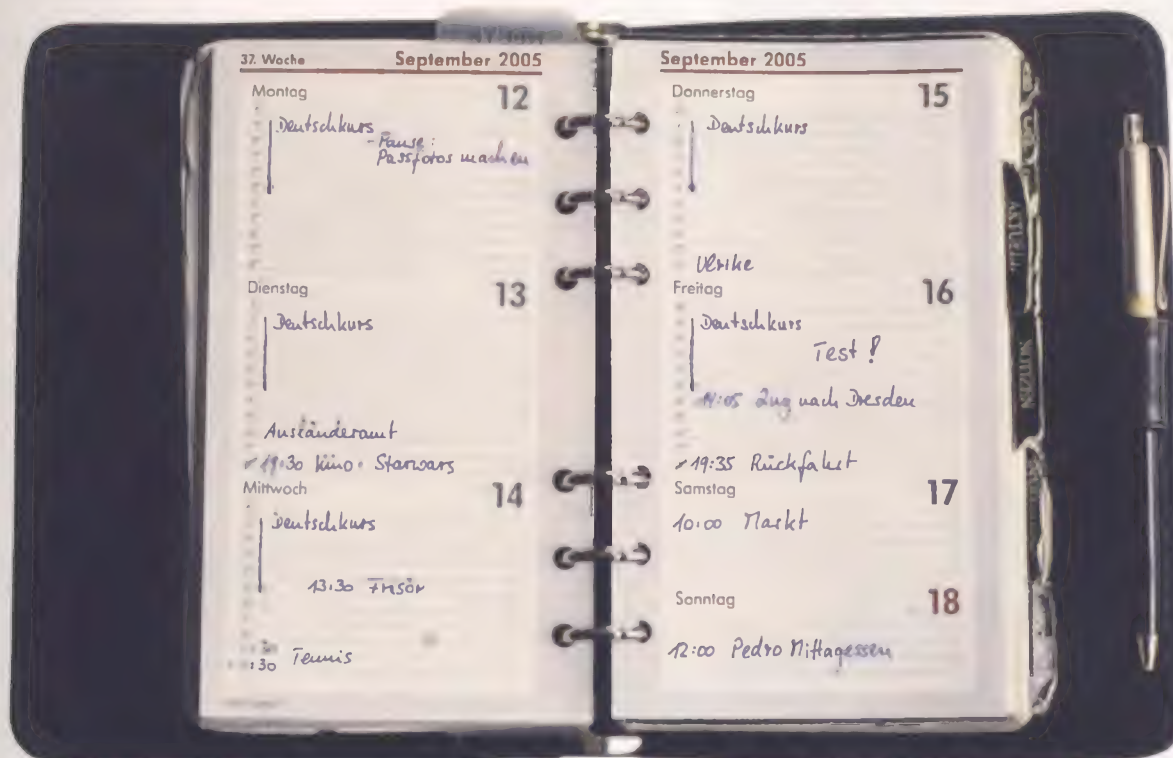 37. Woche September 2005
Montag 12
Deutschkurs
- Pause:
Passfotos machen
Dienstag 13
Deutschkurs
Ausländeramt
19:30 Kino: Starwars
Mittwoch 14
Deutschkurs
13:30 Frisör
:30 Tennis
September 2005
Donnerstag 15
Deutschkurs
Ulrike
Freitag 16
Deutschkurs
Test!
14:05 Zug nach Dresden
19:35 Rückfahrt
Samstag 17
10:00 Markt
Sonntag 18
12:00 Pedro Mittagessen
AKTUELL
NOTIZEN